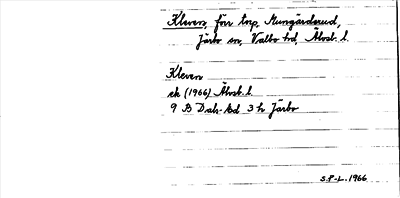 Kleven, förr tnp, Mungärdsrud,
Järbo sn, Valbo hd, Älvsb. l.
Kleven
ek (1966) Älvsb. l
9 B Dals-Ed 3 h Järbo
S.P-L. 1966